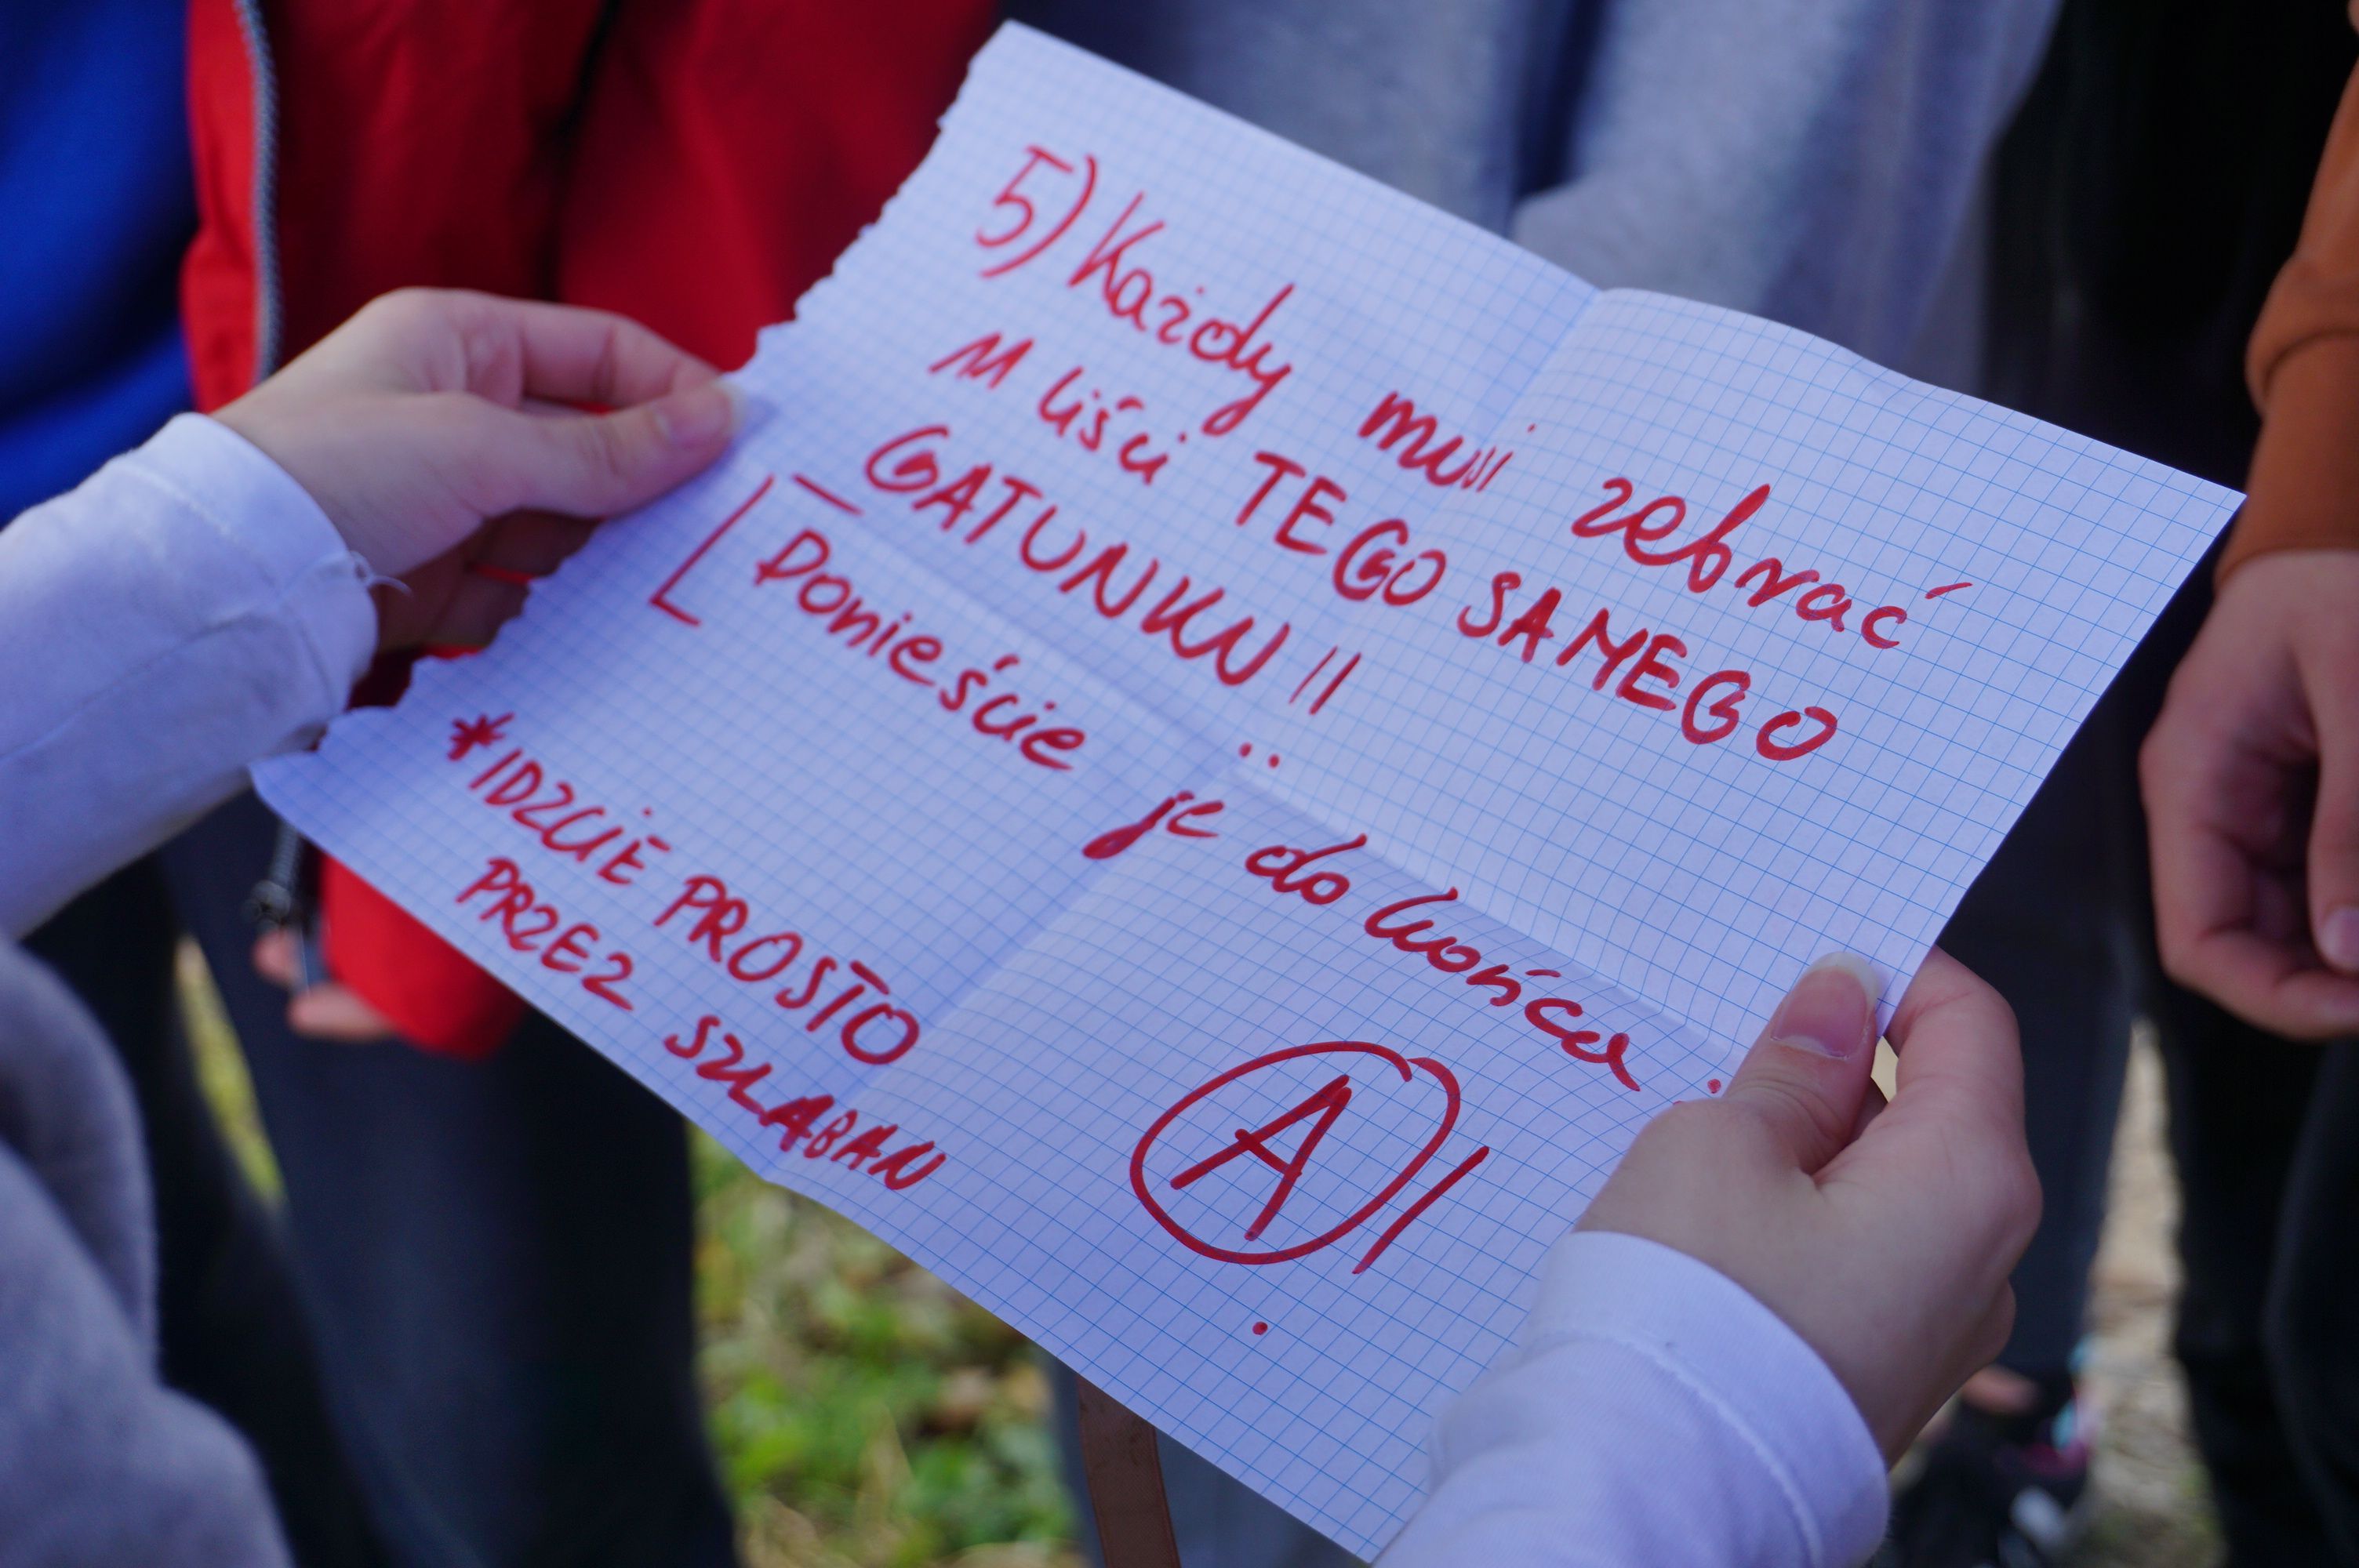 5) Każdy musi zebrać
11 liści TEGO SAMEGO
GATUNKU !!
Donieście je do końca.
* IDZCIE PROSTO
PRZEZ SZLABAN
A !